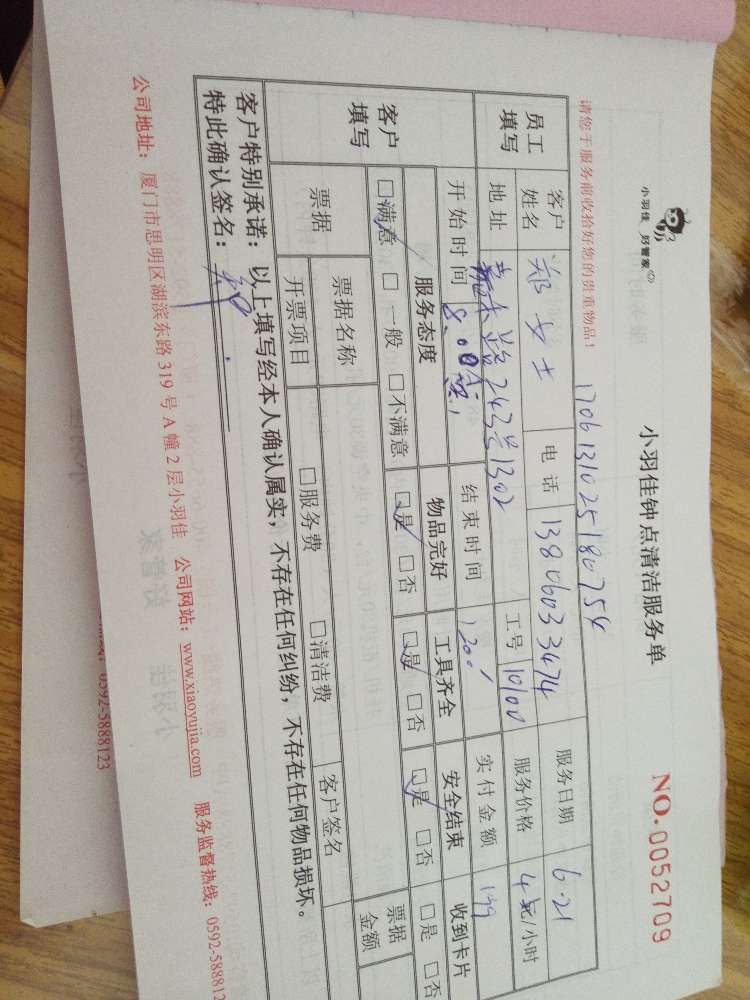 小羽佳 好管家
小羽佳钟点清洁服务单
NO.0052709
请您于服务前收拾好您的贵重物品!
1706131025180754
员工填写
客户姓名 郑女士 电话 13806033474 服务日期 6.21
地址 243号1302 工号 10100 服务价格 /小时
开始时间 8:00 结束时间 1200 实付金额 199
客户填写
服务态度 物品完好 工具齐全 安全结束 收到卡片
□满意 □一般 □不满意 □是 □否 □是 □否 □是 □否 □是 □否
票据 票据名称 客户签名 票据金额
开票项目 □服务费 □清洁费
客户特别承诺:以上填写经本人确认属实,不存在任何纠纷,不存在任何物品损坏。
特此确认签名:
公司地址:厦门市思明区湖滨东路 319 号 A 幢 2 层小羽佳 公司网站:www.xiaoyujia.com 服务监督热线:0592-5888123
0592-5888123